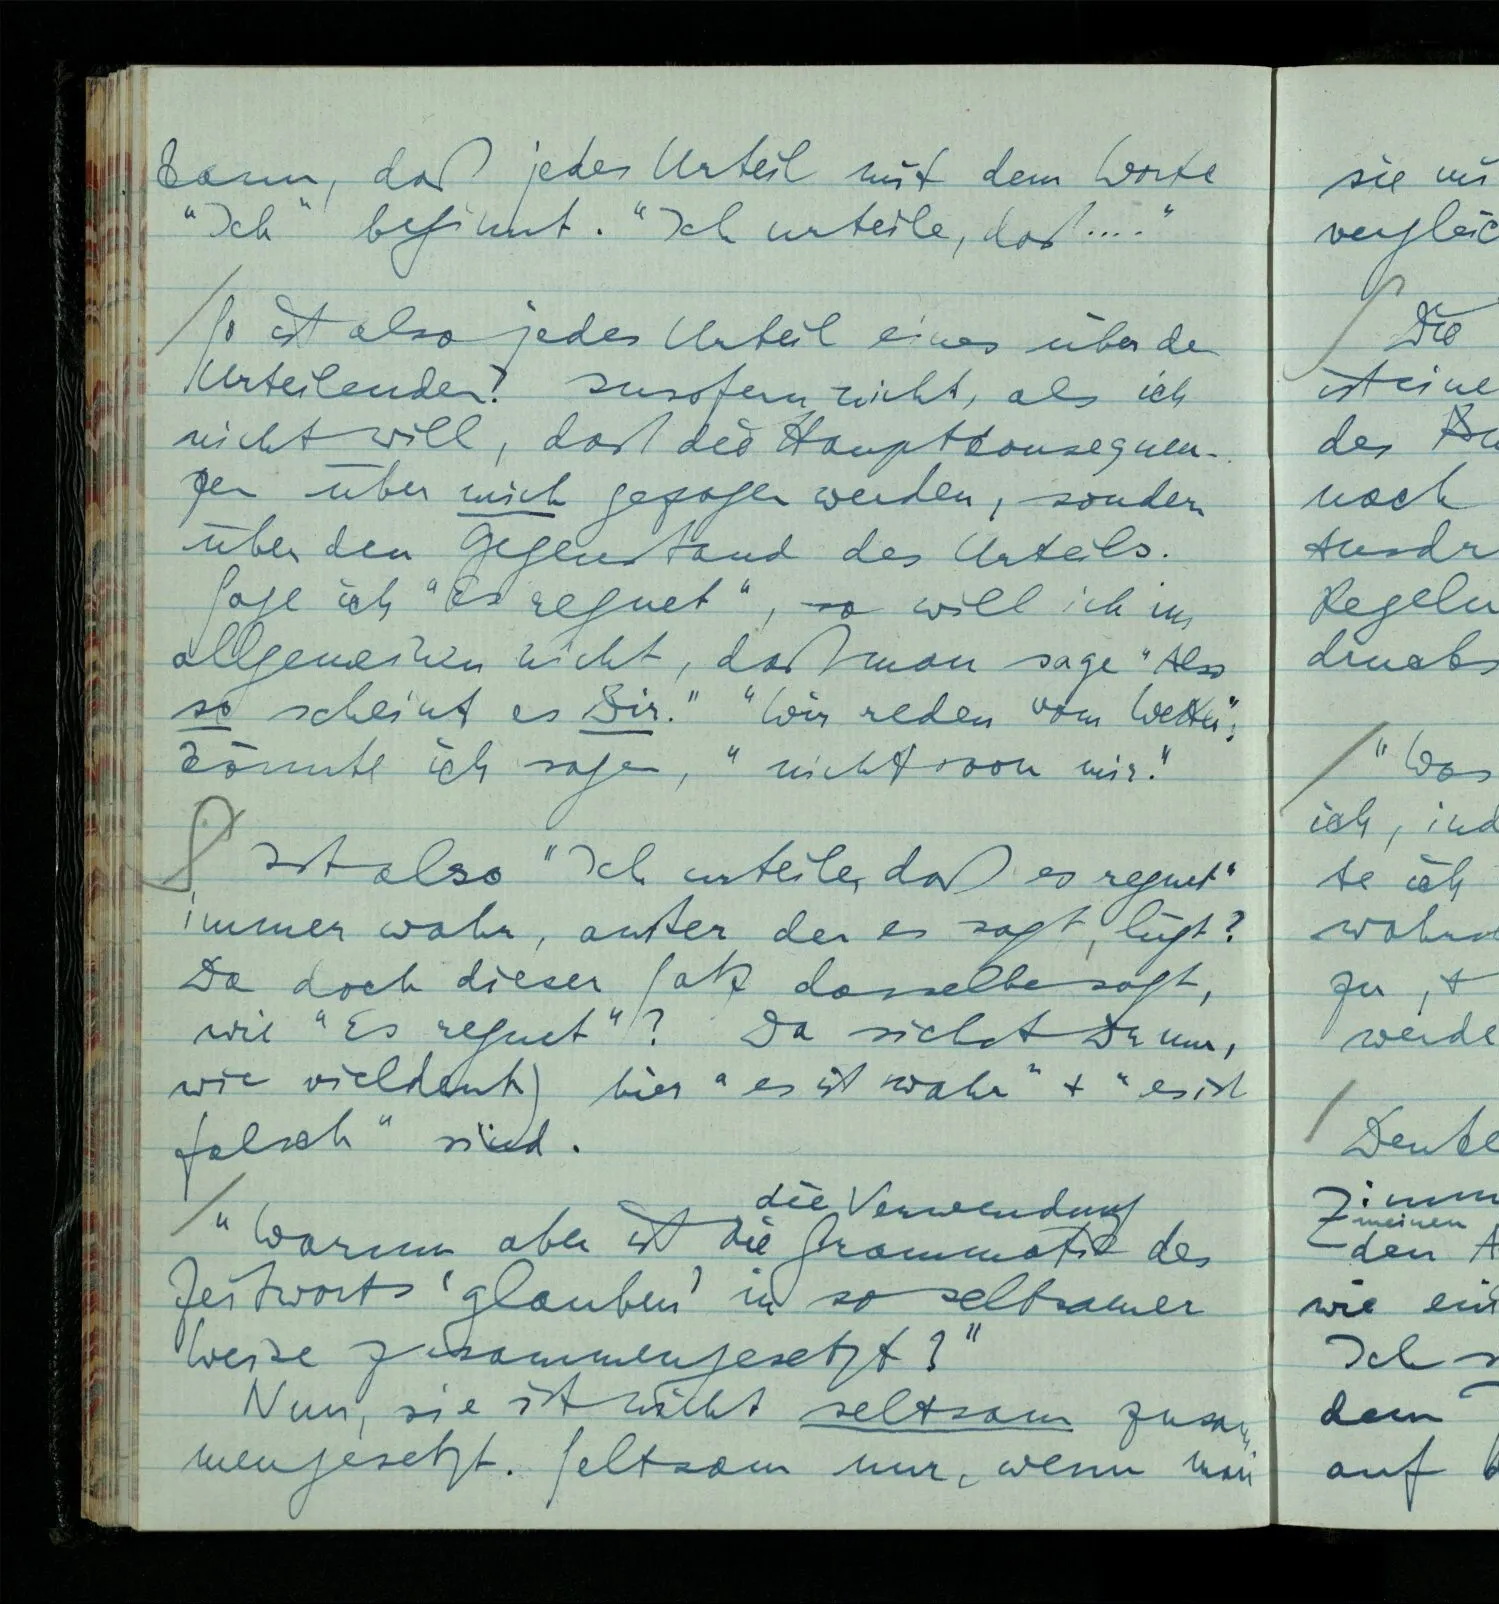 kann, daß jedes Urteil mit dem Worte
"Ich" beginnt. "Ich urteile, daß ...."
So ist also jedes Urteil eines über den
Urteilenden? Insofern nicht, als ich
nicht will, daß die Hauptkonsequen-
zen über mich gezogen werden, sondern
über den Gegenstand des Urteils.
Sage ich "Es regnet", so will ich im
allgemeinen nicht, daß man sage "Also
so scheint es Dir." "Wir reden vom Wetter",
könnte ich sagen, "nicht von mir."
Ist also "Ich urteile, daß es regnet"
immer wahr, außer der es sagt, lügt?
Da doch dieser Satz dasselbe sagt,
wie "Es regnet"? Da siehst Du nun,
wie vieldeutig hier "es ist wahr" + "es ist
falsch" sind.
die Verwendung
"Warum aber ist die Grammatik des
Zeitworts 'glauben' in so seltsamer
Weise zusammengesetzt?"
Nun, sie ist nicht seltsam zusam-
mengesetzt. Seltsam nur, wenn man
sie mi
vergleic
Die
ist eine
des
noch
Ausdr
Regeln
drucks
"Was
ich, ind
te ich
wahr
zu, +
werde
Denke
Zimm
meinen
den A
wie ein
Ich
dem
auf